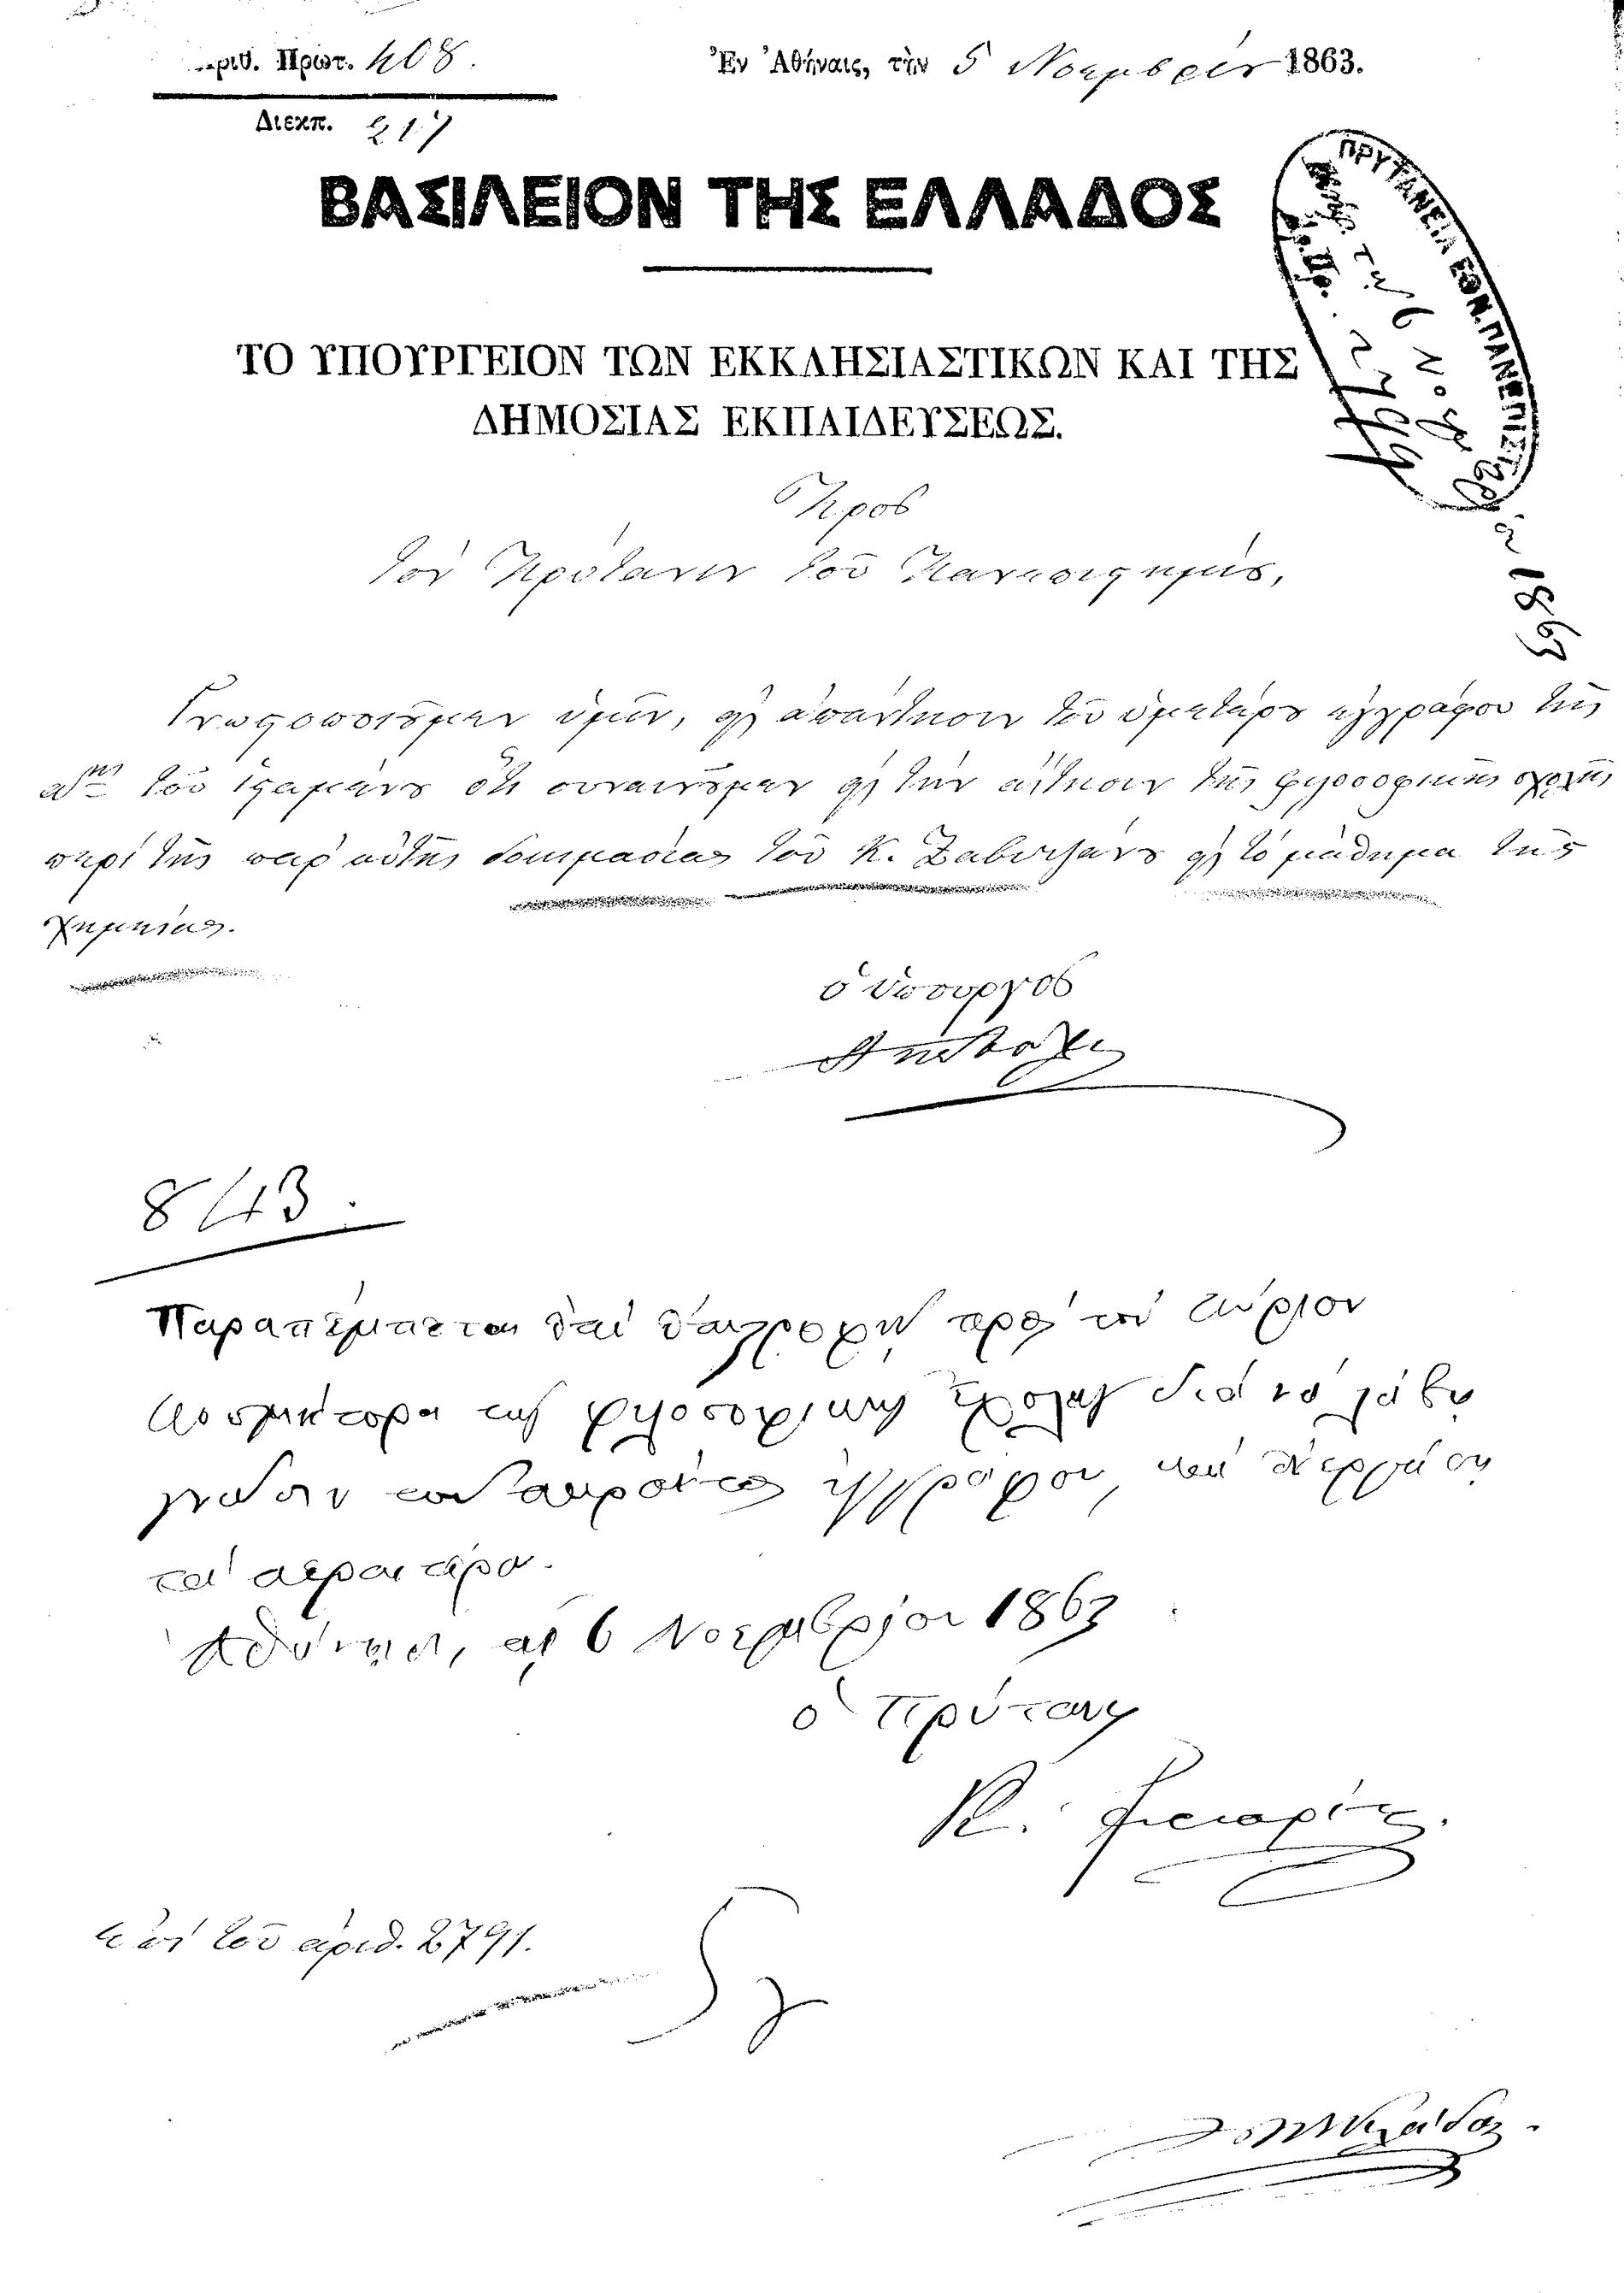 Αριθ. Πρωτ. 408.
Ἐν Ἀθήναις, τὴν 5 Νοεμβρίου 1863.
Διεκπ. 217
ΒΑΣΙΛΕΙΟΝ ΤΗΣ ΕΛΛΑΔΟΣ
ΠΡΥΤΑΝΕΙΑ ΕΘΝ. ΠΑΝΕΠΙΣΤ
τὴν 6 Νοεμβρ 1863
ΤΟ ΥΠΟΥΡΓΕΙΟΝ ΤΩΝ ΕΚΚΛΗΣΙΑΣΤΙΚΩΝ ΚΑΙ ΤΗΣ
ΔΗΜΟΣΙΑΣ ΕΚΠΑΙΔΕΥΣΕΩΣ.
Πρὸς
τὸν Πρύτανιν τοῦ Πανεπιστημίου,
Γνωστοποιοῦμεν ὑμῖν, εἰς ἀπάντησιν τοῦ ὑμετέρου ἐγγράφου τῆς
τοῦ ὅτι συναινοῦμεν εἰς τὴν αἴτησιν τῆς φιλοσοφικῆς σχολῆς
περὶ τῆς παρ' αὐτῆς δοκιμασίας τοῦ Κ. Ζαβιτζάνου εἰς τὸ μάθημα τῆς
χημείας.
ὁ Ὑπουργὸς
843.
Παραπέμπεται ἐπὶ ἐπιστροφῇ πρὸς τὸν κύριον
Κοσμήτορα τῆς φιλοσοφικῆς Σχολῆς διὰ νὰ λάβῃ
γνῶσιν τοῦ παρόντος ἐγγράφου, καὶ ἐνεργήσῃ
τὰ περαιτέρω.
Ἀθήνησι, τῇ 6 Νοεμβρίου 1863
ὁ Πρύτανις
Κ.
τοῦ ἀριθ. 2791.